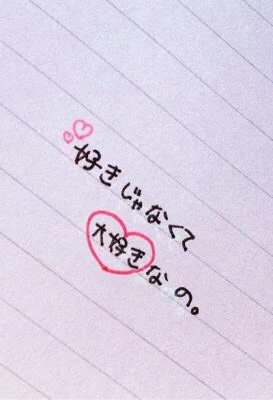 好きじゃなくて
大好きなの。